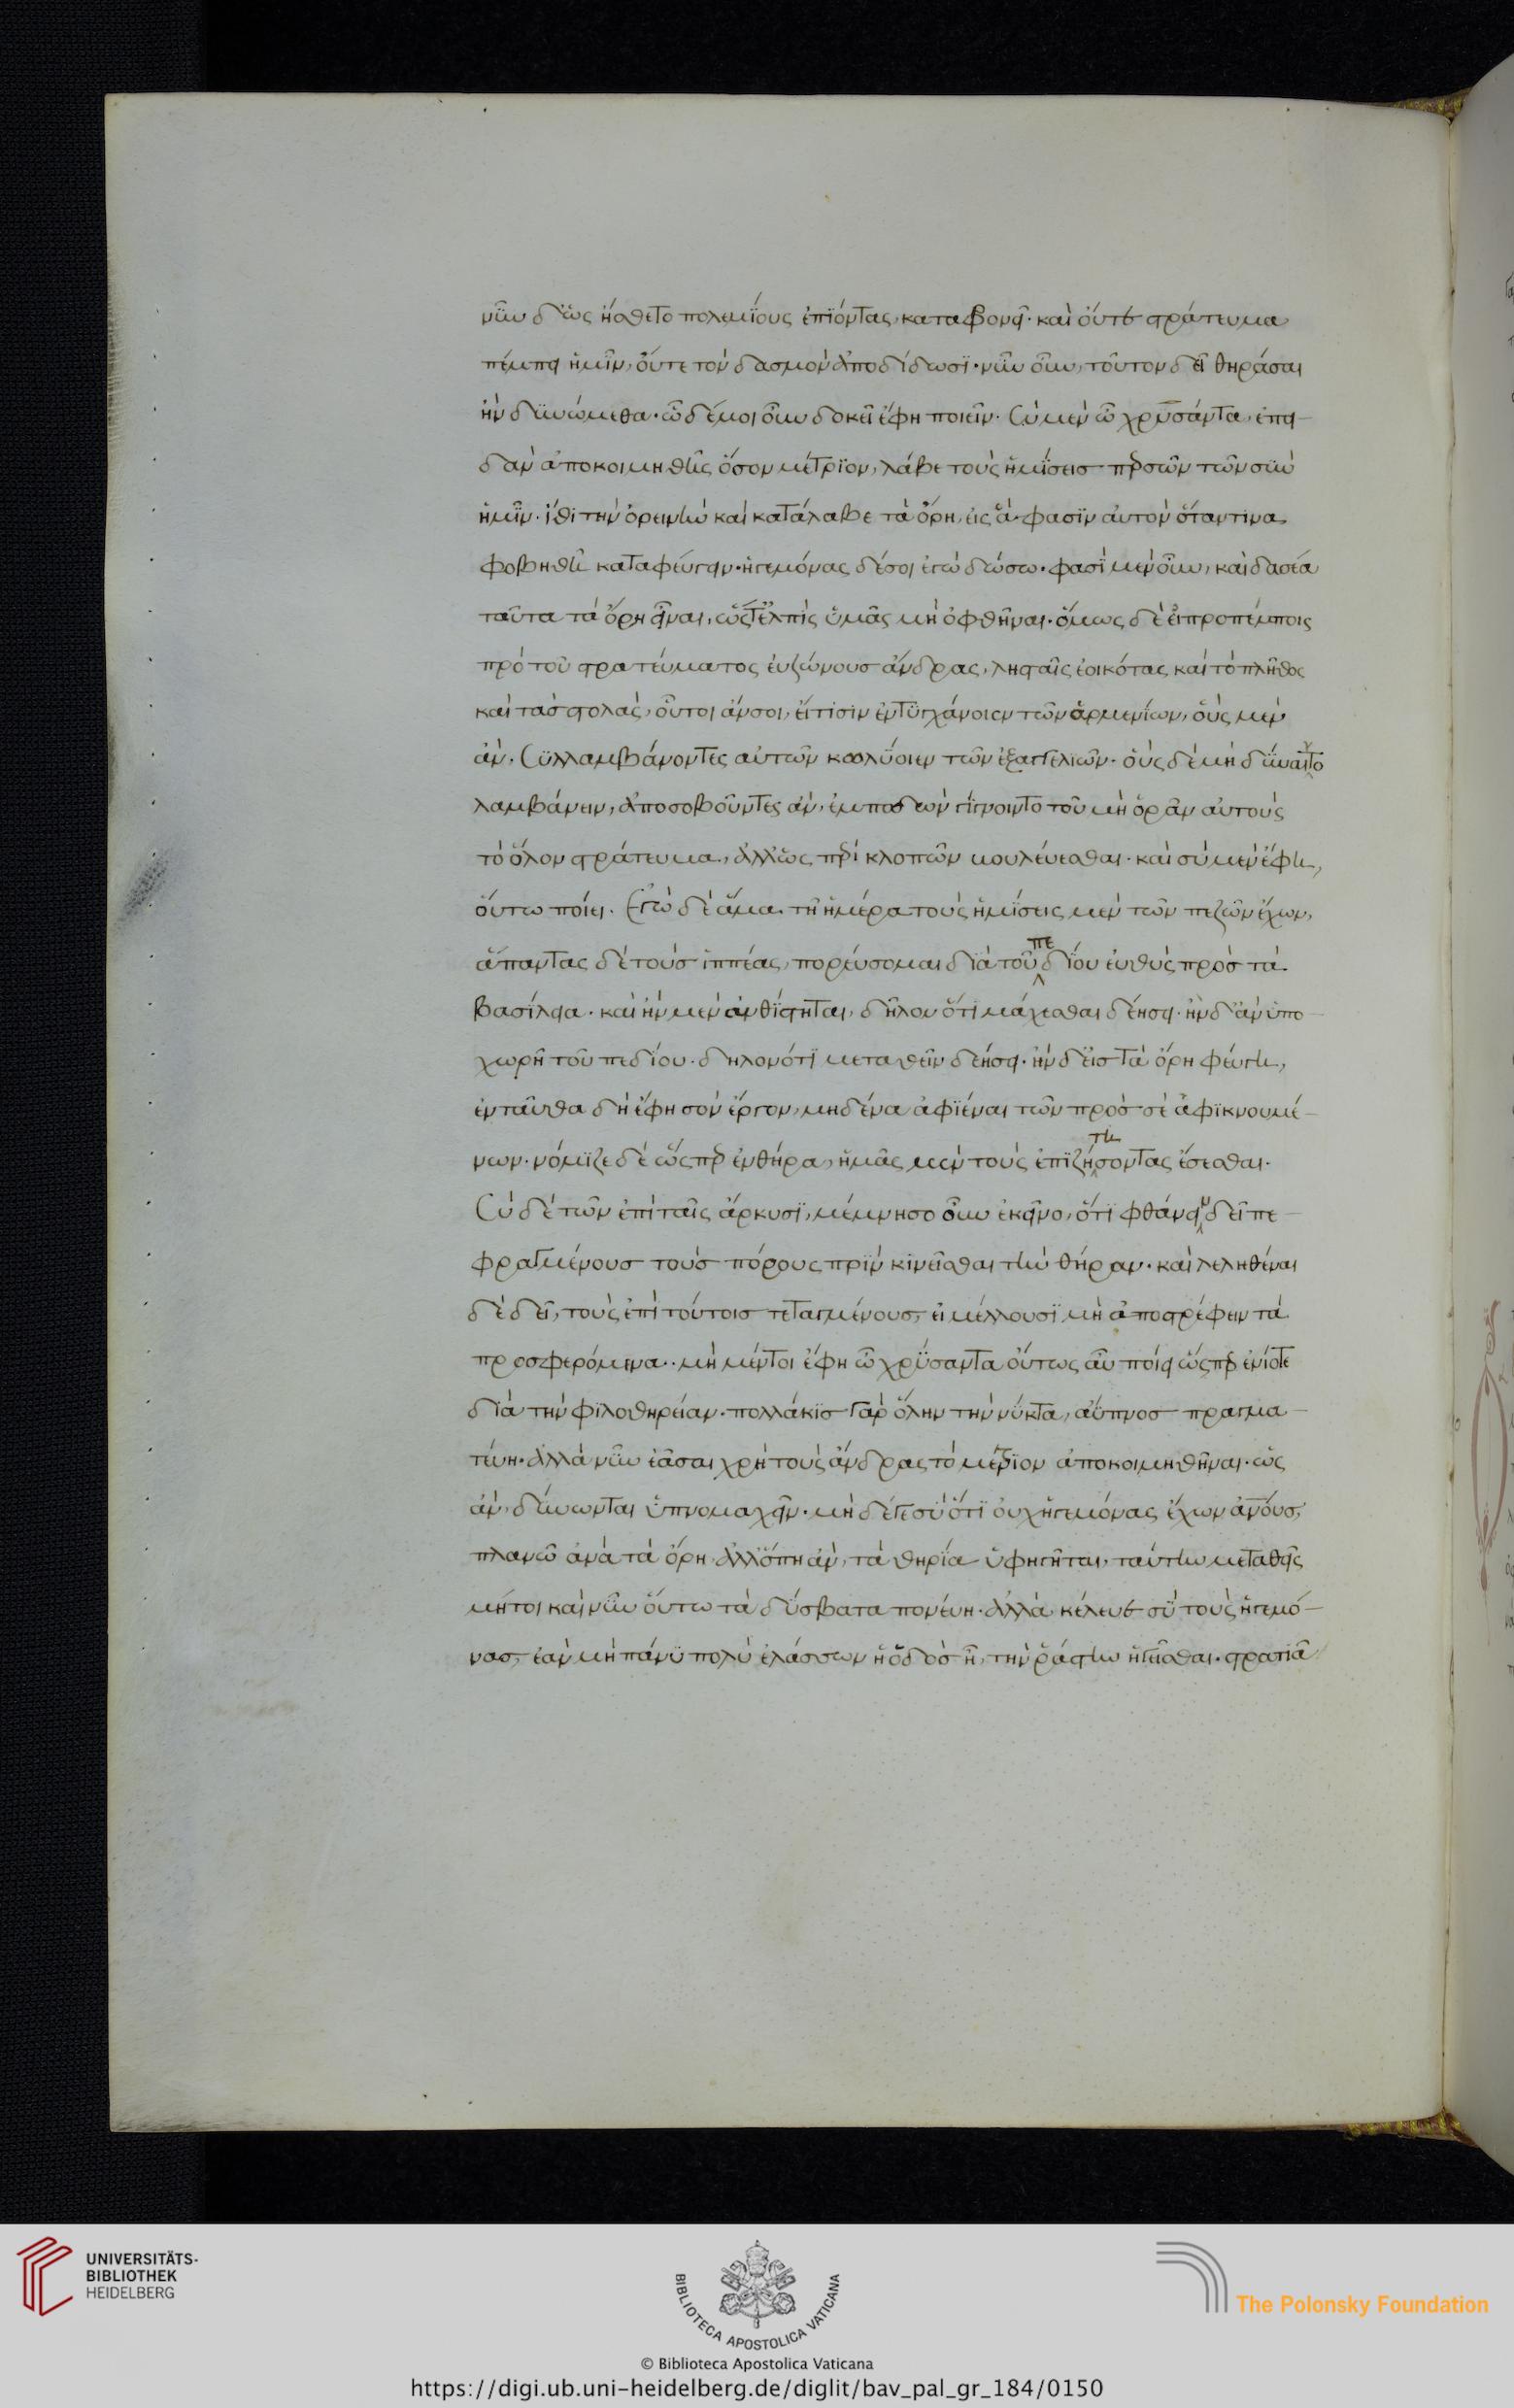 νῦν δ' ὡς ᾔσθετο πολεμΐους ἐπϊόντας, καταφρονεῖ· καὶ οὔτε στράτευμα
πέμπει ἡμῖν, οὔτε τὸν δασμὸν ἀποδίδωσϊ· νῦν οὖν, τοῦτον δεῖ θηρᾶσαι
ἢν δϋνώμεθα· ὧδέ μοι οὖν δοκεῖ ἔφη ποιεῖν. Σὺ μὲν ὦ χρϋσάντα, ἐπει-
δὰν ἀποκοιμηθῇς ὅσον μέτρϊον, λάβε τοὺς ἡμΐσεισ περσῶν τῶν σὺν
ἡμῖν· ἴθι τὴν ὀρεινὴν καὶ κατάλαβε τὰ ὄρη, εἰς ἃ φασϊν αὐτὸν ὅταν τινα
φοβηθῇ καταφεύγειν· ἡγεμόνας δέ σοι ἐγὼ δώσω· φασῒ μὲν οὖν, καὶ δασέα
ταῦτα τὰ ὄρη εἶναι, ὥστ' ἐλπὶς ὑμᾶς μὴ ὀφθῆναι· ὅμως δὲ εἰ προπέμποις
πρὸ τοῦ στρατεύματος εὐζώνουσ ἄνδρας, λησταῖς ἐοικότας καὶ τὸ πλῆθος
καὶ τὰσ στολὰς, οὗτοι ἄν σοι, εἴ τισιν ἐντϋγχάνοιεν τῶν ἀρμενίων, οὓς μὲν
ἂν. Σϋλλαμβάνοντες αὐτῶν κωλΰοιεν τῶν ἐξαγγελϊῶν· οὓς δὲ μὴ δΰναιντο
λαμβάνειν, ἀποσοβοῦντες ἂν, ἐμποδὼν γΐγνοιντο τοῦ μὴ ὁρᾶν αὐτοὺς
τὸ ὅλον στράτευμα, ἀλλ' ὡς περὶ κλοπῶν βουλεύεσθαι· καὶ σὺ μὲν ἔφη,
οὕτω ποίει. Ἐγὼ δὲ ἅμα τῆ ἡμέρα τοὺς ἡμίσεις μὲν τῶν πεζῶν ἔχων,
ἅπαντας δὲ τοὺσ ἱππέας, πορεύσομαι δϊὰ τοῦ πεδΐου εὐθὺς πρὸσ τὰ
βασίλεια· καὶ ἢν μὲν ἀνθϊστῆται, δῆλον ὅτϊ μάχεσθαι δεήσει· ἢν δ' ἂν ὑπο-
χωρῆ τοῦ πεδίου· δῆλον ὅτϊ μεταθεῖν δεήσει· ἢν δ' εἰσ τὰ ὄρη φεύγη,
ἐνταῦθα δὴ ἔφη σὸν ἔργον, μηδένα ἀφϊέναι τῶν πρὸσ σὲ ἀφϊκνουμέ-
νων· νόμϊζε δὲ ὥσπερ ἐν θήρα, ἡμᾶς μὲν τοὺς ἐπϊζητήσοντας ἔσεσθαι·
Σὺ δὲ τῶν ἐπὶ ταῖς ἄρκυσϊ, μέμνησο οὖν ἐκεῖνο, ὅτϊ φθάνειν δεῖ πε-
φραγμένουσ τοὺσ πόρους πρϊν κϊνεῖσθαι τὴν θήραν· καὶ λεληθέναι
δὲ δεῖ, τοὺς ἐπὶ τούτοισ τεταγμένουσ, εἰ μέλλουσϊ μὴ ἀποστρέφειν τὰ
προσφερόμενα· μὴ μέντοι ἔφη ὦ χρϋσάντα οὕτως αὖ ποίει ὥσπερ ἐνίοτε
δϊὰ τὴν φϊλοθηρείαν· πολλάκϊσ γὰρ ὅλην τὴν νΰκτα, ἄϋπνοσ πραγμα-
τεύη· ἀλλὰ νῦν ἐᾶσαι χρὴ τοὺς ἄνδρας τὸ μέτρϊον ἀποκοιμηθῆναι· ὡς
ἂν, δΰνωνται ὑπνομαχεῖν· μὴ δέ γε σὺ ὅτϊ οὐχ ἡγεμόνας ἔχων ἀνοὺσ,
πλανῶ ἀνὰ τὰ ὄρη ἀλλ' ὅπη ἂν, τὰ θηρία ὑφηγῆται, ταύτη μεταθεῖς
μήτοι καὶ νῦν οὕτω τὰ δΰσβατα πορεύη· ἀλλὰ κέλευε σὺ τοὺς ἡγεμό-
νασ, ἐὰν μὴ πάνϋ πολὺ ἐλάσσων ἡ ὁδὸσ ἦ, τὴν ῥάστην ἡγεῖσθαι· στρατϊᾶ
UNIVERSITÄTS-
BIBLIOTHEK
HEIDELBERG
BIBLIOTECA APOSTOLICA VATICANA
The Polonsky Foundation
© Biblioteca Apostolica Vaticana
https://digi.ub.uni-heidelberg.de/diglit/bav_pal_gr_184/0150